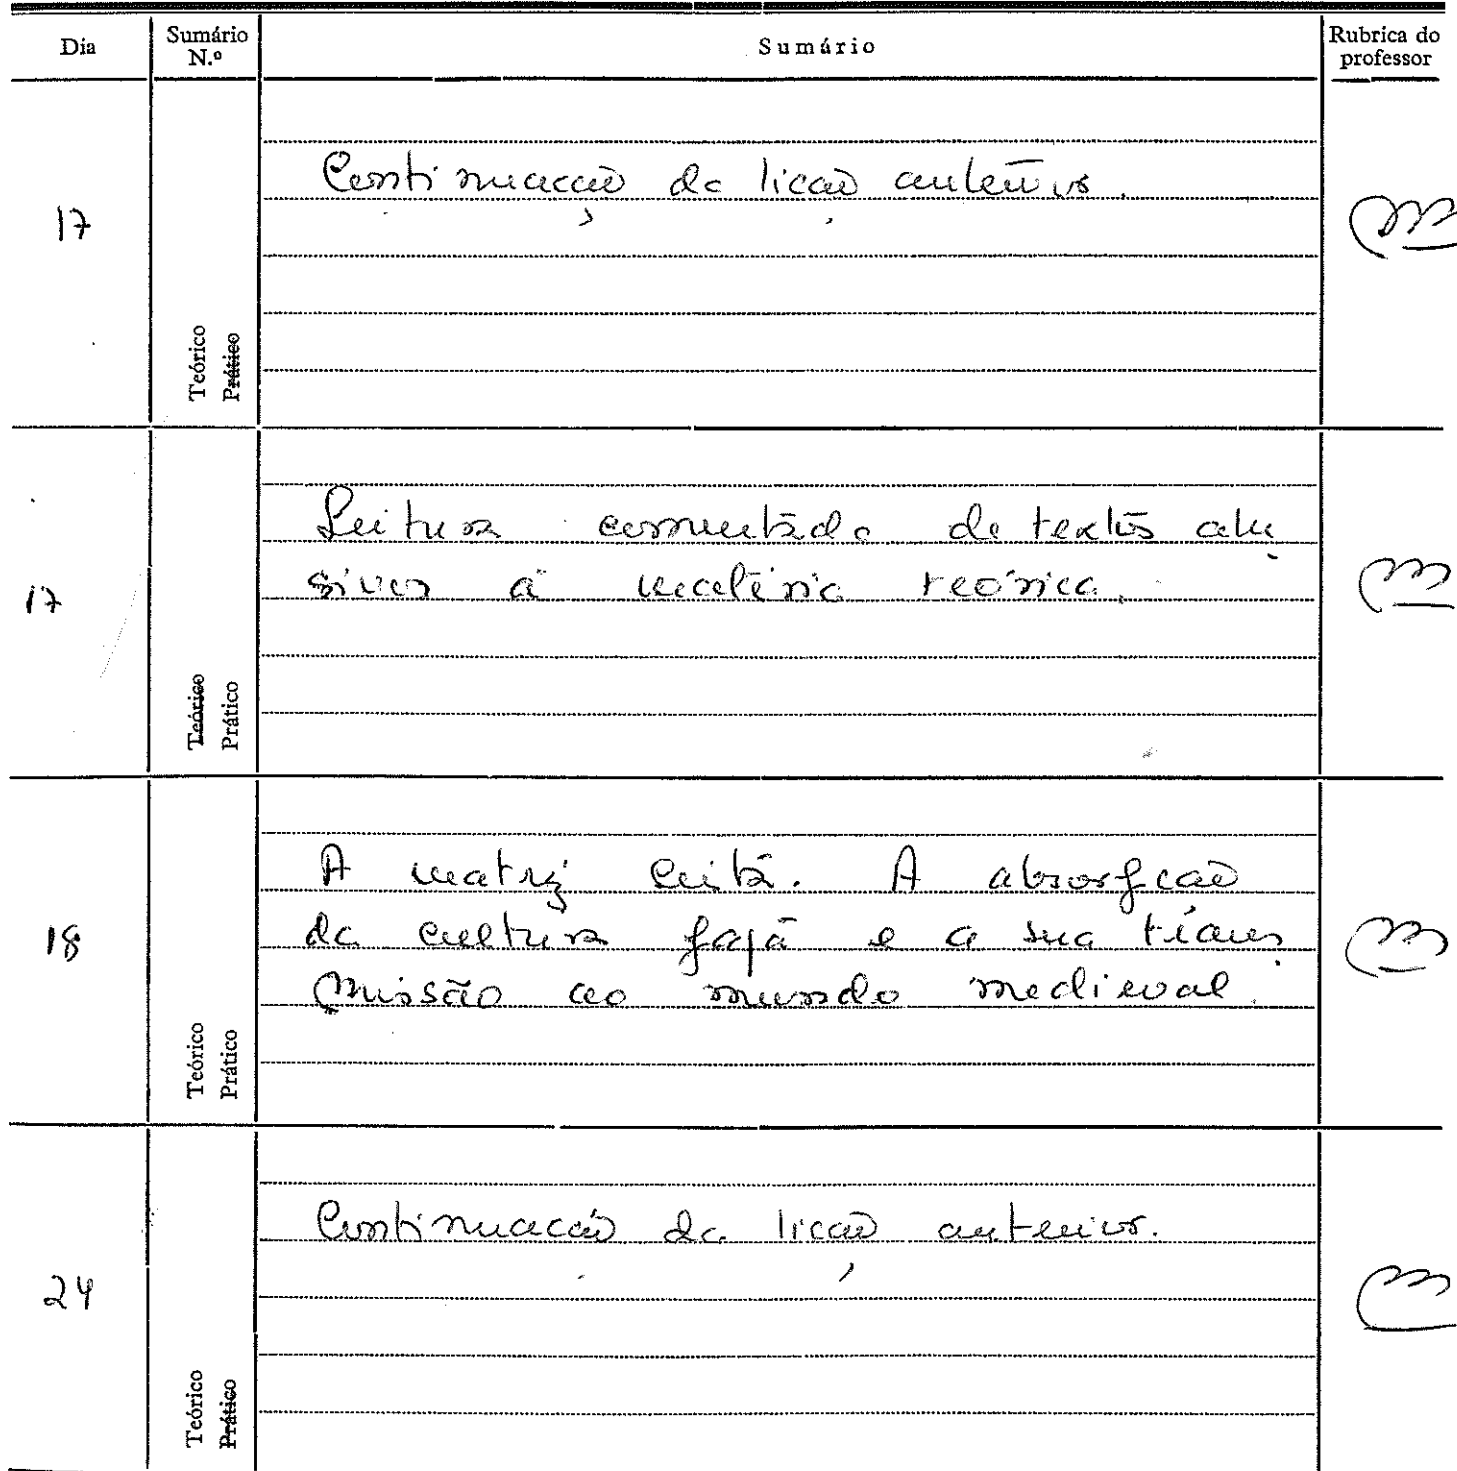 Dia Sumário N.º Sumário Rubrica do professor
17
Continuação da lição anterior.
Teórico
Prático
17
Leitura comentada de textos alu
sivos à matéria teórica.
Teórico
Prático
18
A matriz cristã. A absorpção
da cultura pagã e a sua trans
missão ao mundo medieval.
Teórico
Prático
24
Continuação da lição anterior.
Teórico
Prático